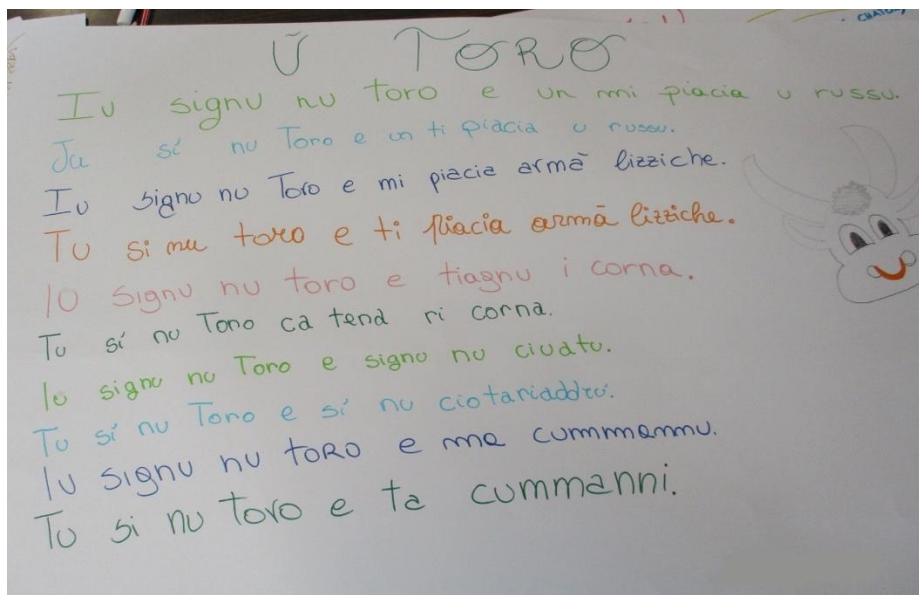 Ū TORO
Iu signu nu toro e un mi piacia u russu.
Tu sí nu Toro e un ti piacia u russu.
Iu signu nu Toro e mi piacia armā lizziche.
Tu si nu toro e ti piacia armā lizziche.
Iu signu nu toro e tiagnu i corna.
Tu sí nu Toro ca tend ri corna.
Iu signu nu Toro e signu nu ciuatu.
Tu sí nu Toro e sí nu ciotariaddru.
Iu signu nu toro e ma cummannu.
Tu si nu toro e ta cummanni.